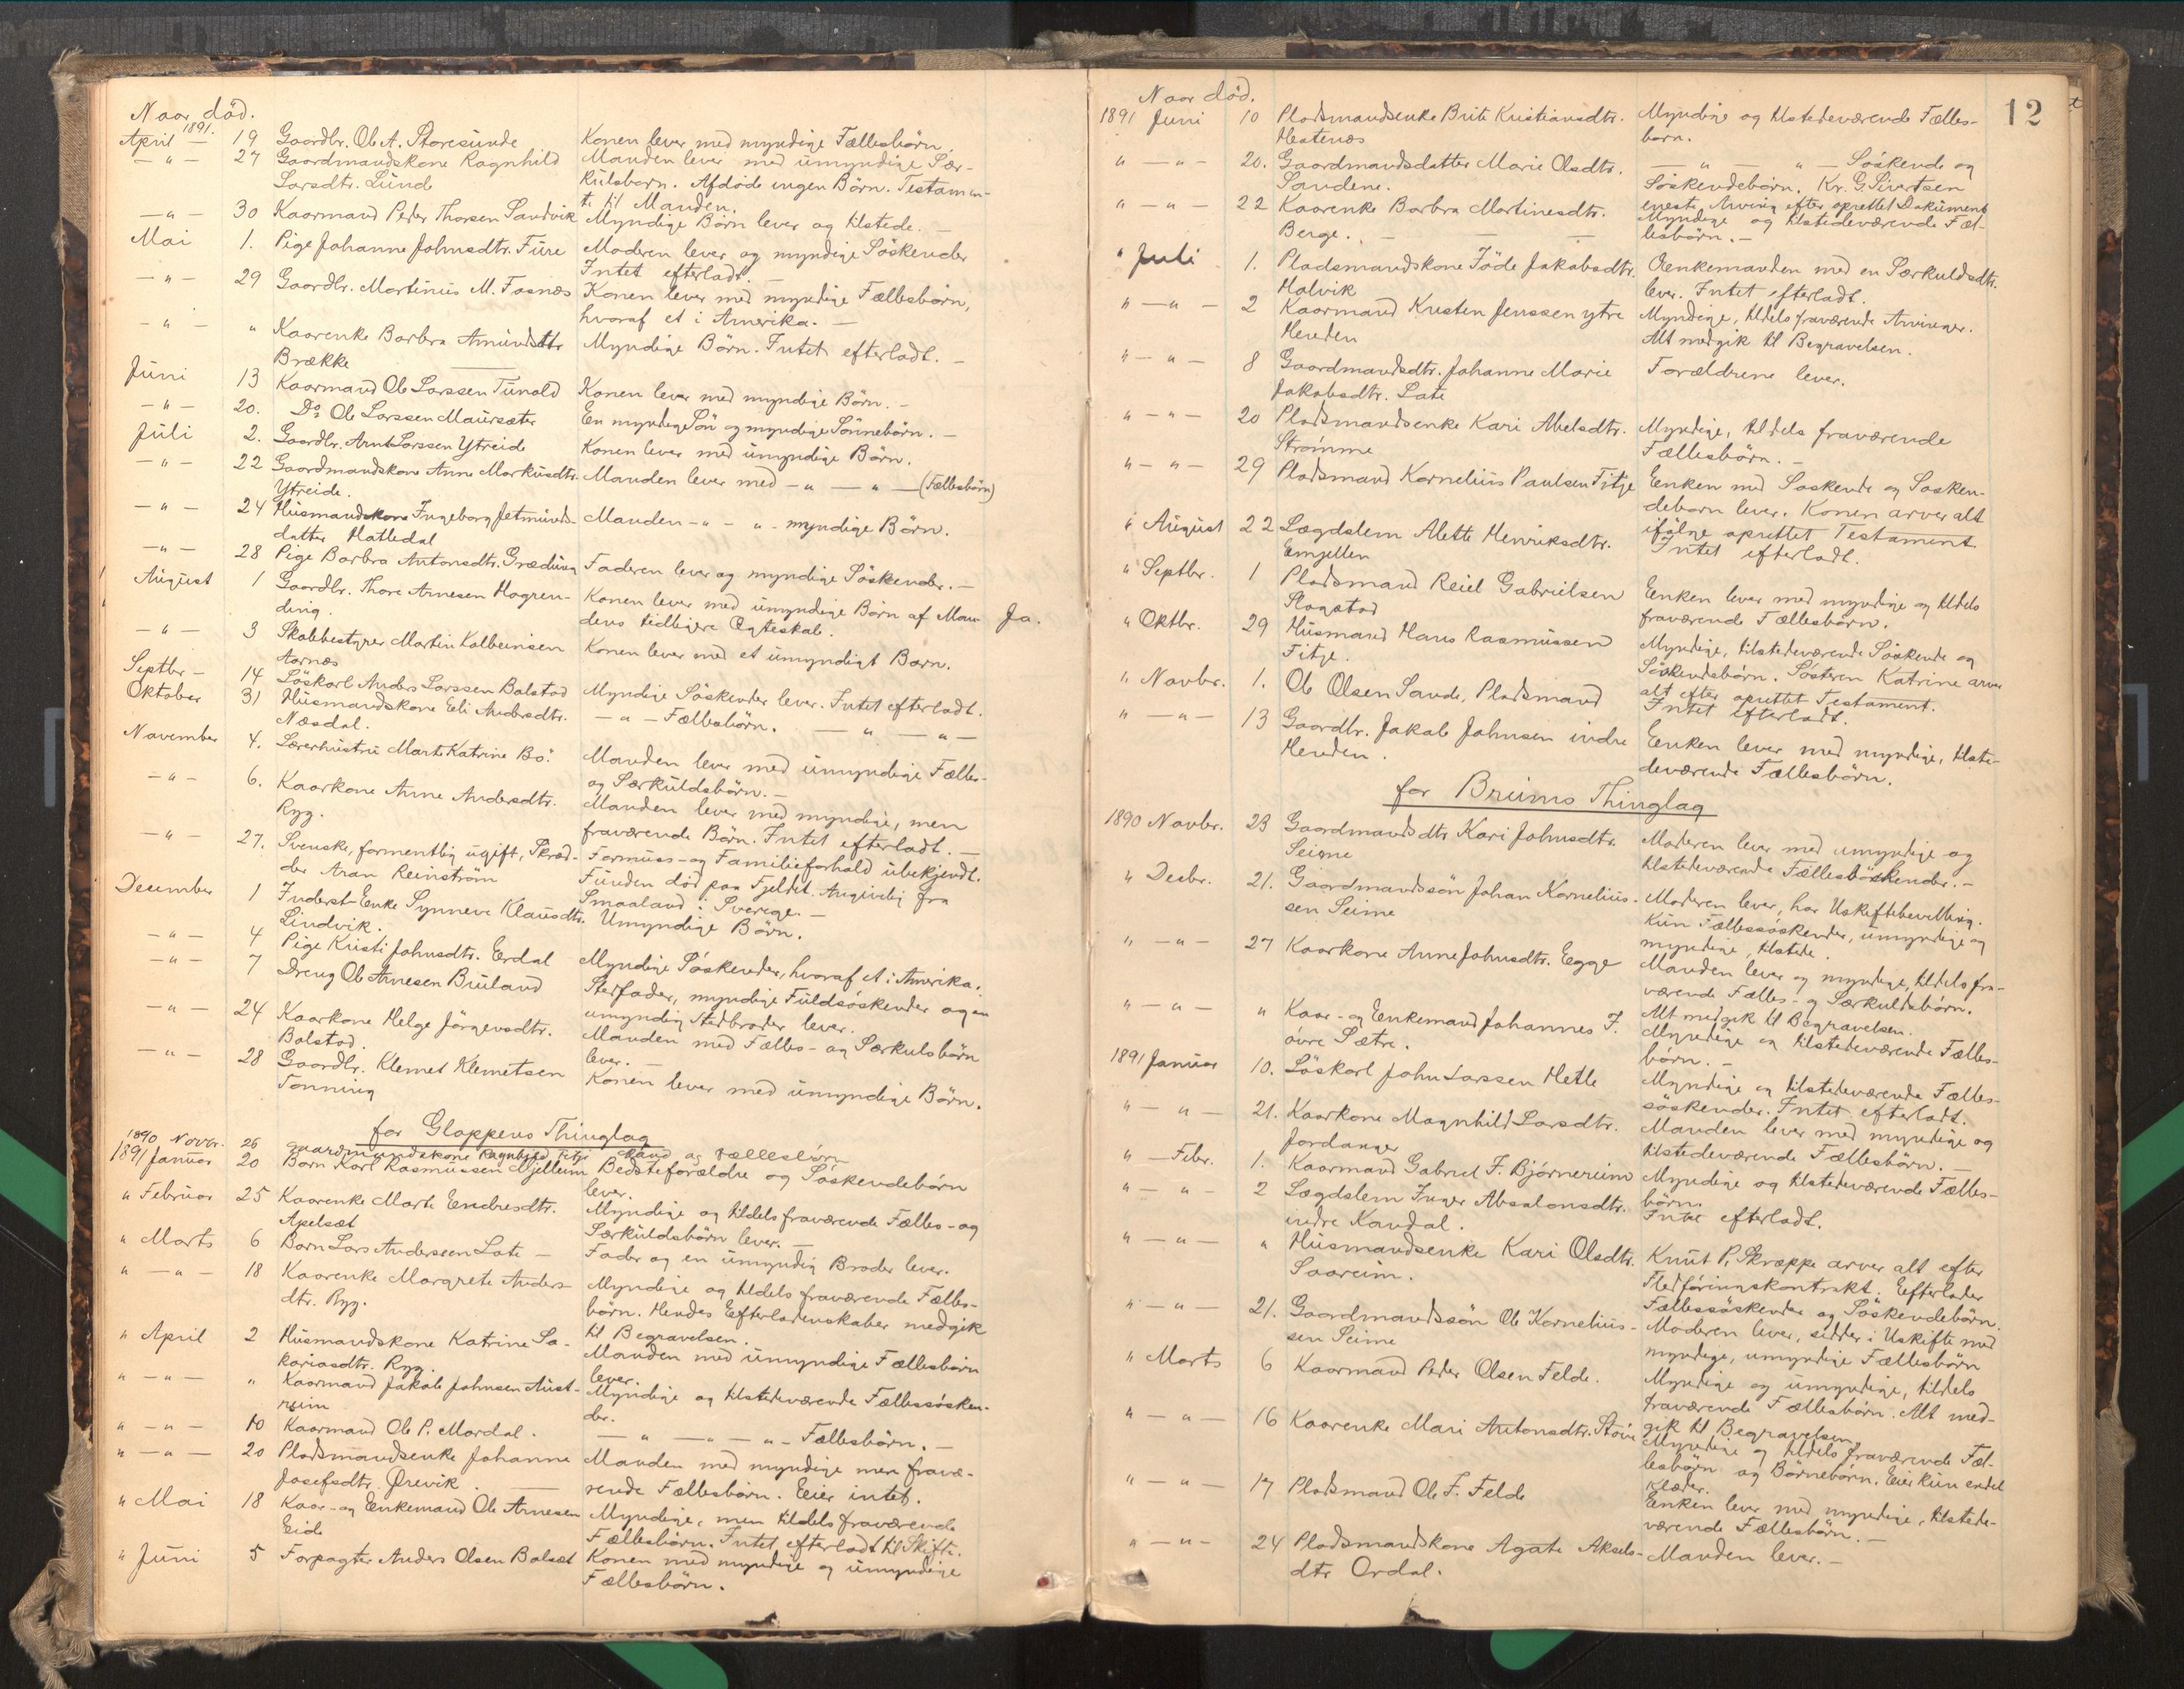 Naar död.
1891.
April — 19 Gaardbr. Ole A. Storesunde Konen lever med myndige Fællesbörn.
— " — 27 Gaardmandskone Ragnhild Manden lever med umyndige Sær-
Larsdtr. Lunde kulsbarn. Afdöde ingen Börn. Testamen-
te til Manden.
— " — 30 Kaarmand Peder Thorsen Sandvik Myndige Börn lever og tilstede. —
Mai 1. Pige Johanne Johnsdtr. Fure Moderen lever og myndige Söskender
Intet efterladt. —
— " — 29 Gaardbr. Martinus M. Fosnæs Konen lever med myndige Fællesbörn,
hvoraf et i Amerika. —
— " — " Kaarenke Barbra Amundsdtr Myndige Börn. Intet efterladt. —
Brække
Juni 13 Kaarmand Ole Larssen Tunold Konen lever med myndige Börn. —
— " — 20. Do Ole Larssen Maurseter En myndig Sön og myndige Sönnebörn. —
Juli 2. Gaardbr. Arnt Larssen Ytreide Konen lever med umyndige Börn.
— " — 22 Gaardmandskone Anne Markusdtr. Manden lever med — " — " — (Fællesbörn)
Ytreide.
— " — 24 Husmandskone Ingeborg Jetmunds- Manden — " — " — myndige Börn.
datter Hatledal
— " — 28 Pige Barbra Antonsdtr. Græding Faderen lever og myndige Söskender. —
August 1 Gaardbr. Thore Arnesen Hogren- Konen lever med umyndige Börn af Man- Ja.
ding. dens tidligere Ægteskab.
— " — 3 Skolebestyrer Martin Kolbeinsen Konen lever med et umyndigt Barn.
Aarnæs
Septbr — 14 Löskarl Anders Larssen Bolstad Myndige Söskender lever. Intet efterladt.
Oktober 31 Husmandskone Eli Andersdtr. — " — Fællesbörn. — " — " —
Næsdal.
November 4. Lærerhustru Marte Katrine Bö. Manden lever med umyndige Fælles-
og Særkuldsbörn. —
— " — 6. Kaarkone Anne Andersdtr. Manden lever med myndige, men
Ryg. fraværende Börn. Intet efterladt. —
— " — 27. Svenske, formentlig ugift, Skræd- Formues- og Familieforhold ubekjendt.
der Aran Reinström Funden död paa Fjeldet. Angivelig fra
Smaaland i Sverige. —
December 1 Inderst-Enke Synneve Klausdtr. Umyndige Börn.
Lindvik.
— " — 4 Pige Kristi Johnsdtr. Erdal Myndige Söskender, hvoraf et i Amerika.
— " — 7 Dreng Ole Arnesen Buland Stedfader, myndige Fuldsöskender og en
umyndig Stedbroder lever.
— " — 24 Kaarkone Helge Jörgensdtr. Manden med Fælles- og Særkulsbörn
Bolstad. lever. —
— " — 28 Gaardbr. Klemet Klemetsen Konen lever med umyndige Börn.
Tonning
for Gloppens Thinglag
1890 Novbr. 26 Gaardmandskone Ragnhild Fitje Mand og Fællesbörn
1891 Januar 20 Barn Karl Rasmussen Mjellem Bedsteforældre og Söskendebörn
lever.
" Februar 25 Kaarenke Marte Endresdtr. Myndige og tildels fraværende Fælles- og
Apelsæt Særkuldsbörn lever. —
" Marts 6 Barn Lars Andersen Late — Fader og en umyndig Broder lever.
" — " — 18 Kaarenke Margrete Anders- Myndige og tildels fraværende Fælles-
dtr. Ryg. börn. Hendes Efterladenskaber medgik
til Begravelsen.
" April 2 Husmandskone Katrine Sa- Manden med umyndige Fællesbörn
kariasdtr. Ryg. lever.
" — " — " Kaarmand Jakob Johnsen Aust- Myndige og tilstedeværende Fællessösken-
rim der.
" — " — 10 Kaarmand Ole P. Mardal. — " — " — " — Fællesbörn. —
" — " — 20 Pladsmandsenke Johanne Manden med myndige men fravæ-
Josefsdtr. Ørevik. rende Fællesbörn. Eier intet.
" Mai 18 Kaar- og Enkemand Ole Arnesen Myndige, men tildels fraværende
Eide Fællesbörn. Intet efterladt til Skifte.
" Juni 5 Forpagter Anders Olsen Balsæt Konen med myndige og umyndige
Fællesbörn.
12
Naar död.
1891 Juni 10 Pladsmandsenke Brite Kristiansdtr. Myndige og tilstedeværende Fælles-
Hestenæs born.
" — " — 20. Gaardmandsdatter Marie Olsdtr. — " — " — Söskende og
Sandene. Söskendebörn. Kr. G. Sivertsen
eneste Arving efter oprettet Dokument
" — " — 22 Kaarenke Barbra Martinesdtr. Myndige og tilstedeværende Fæl-
Berge. — — — lesbörn. —
" Juli 1. Pladsmandskone Jöde Jakobsdtr. Ænkemanden med en Særkuldsdtr.
Holvik lever. Intet efterladt.
" — " — 2 Kaarmand Kristen Jenssen ytre Myndige, tildels fraværende Arvinger.
Henden Alt medgik til Begravelsen.
" — " — 8 Gaardmandsdtr. Johanne Marie Forældrene lever.
Jakobsdtr. Late
" — " — 20 Pladsmandsenke Kari Abelsdtr. Myndige, tildels fraværende
Strömme Fællesbörn. —
" — " — 29 Pladsmand Kornelius Paulsen Fitje Enken med Söskende og Sösken-
debörn lever. Konen arver alt
ifölge oprettet Testament
" August 22 Lægdslem Alette Henriksdtr. Intet efterladt.
Emjellen
" Septbr. 1 Pladsmand Reiel Gabrielsen Enken lever med myndige og tildels
Slagstad fraværende Fællesbörn.
" Oktbr. 29 Husmand Hans Rasmussen Myndige, tilstedeværende Söskende og
Fitje. Söskendebörn. Sösteren Katrine arver
alt efter oprettet Testament.
" Novbr. 1. Ole Olsen Sande, Pladsmand Intet efterladt.
" — " — 13 Gaardbr. Jakob Johnsen indre Enken lever med myndige, tilste-
Henden. deværende Fællesbörn.
for Breims Thinglag
1890 Novbr. 23 Gaardmandsdtr Kari Johnsdtr. Moderen lever med umyndige og
Seime tilstedeværende Fællessöskender. —
" Decbr. 21. Gaardmandssön Johan Kornelius- Moderen lever, har Uskiftebevilling.
sen Seime Kun Fællessöskender, umyndige og
myndige, tilstede.
" — " — 27 Kaarkone Anne Johnsdtr. Egge Manden lever og myndige, tildels fra-
værende Fælles- og Særkuldsbörn.
Alt medgik til Begravelsen.
" — " — " Kaar- og Enkemand Johannes J. Myndige og tilstedeværende Fælles-
övre Sætre. börn. —
1891 Januar 10. Löskarl John Larssen Hetle Myndige og tilstedeværende Fælles-
söskender. Intet efterladt.
" — " — 21. Kaarkone Magnhild Larsdtr. Manden lever med myndige og
Jordanger tilstedeværende Fællesbörn. —
" — Febr. 1. Kaarmand Gabriel J. Bjørnereim Myndige og tilstedeværende Fælles-
börn.
" — " — 2 Lægdslem Inger Absalonsdtr. Intet efterladt.
indre Kandal.
" — " — " Husmandsenke Kari Olsdtr. Knut P. Skrøppe arver alt efter
Saareim. Fledföringskontrakt. Efterlader
Fællessöskender og Söskendebörn.
" — " — 21. Gaardmandssön Ole Kornelius- Moderen lever, sidder i Uskifte med
sen Seime myndige, umyndige Fællesbörn
" Marts 6 Kaarmand Peder Olsen Felde. Myndige og umyndige, tildels
fraværende Fællesbörn. Alt med-
gik til Begravelsen.
" — " — 16 Kaarenke Mari Antonsdtr. Støve Myndige og tildels fraværende Fæl-
lesbörn og Börnebörn. Eier kun endel
Klæder.
" — " — 17 Pladsmand Ole J. Felde Enken lever med myndige, tilstede-
værende Fællesbörn. —
" — " — 24 Pladsmandskone Agate Aksels- Manden lever. —
dtr Ordal.